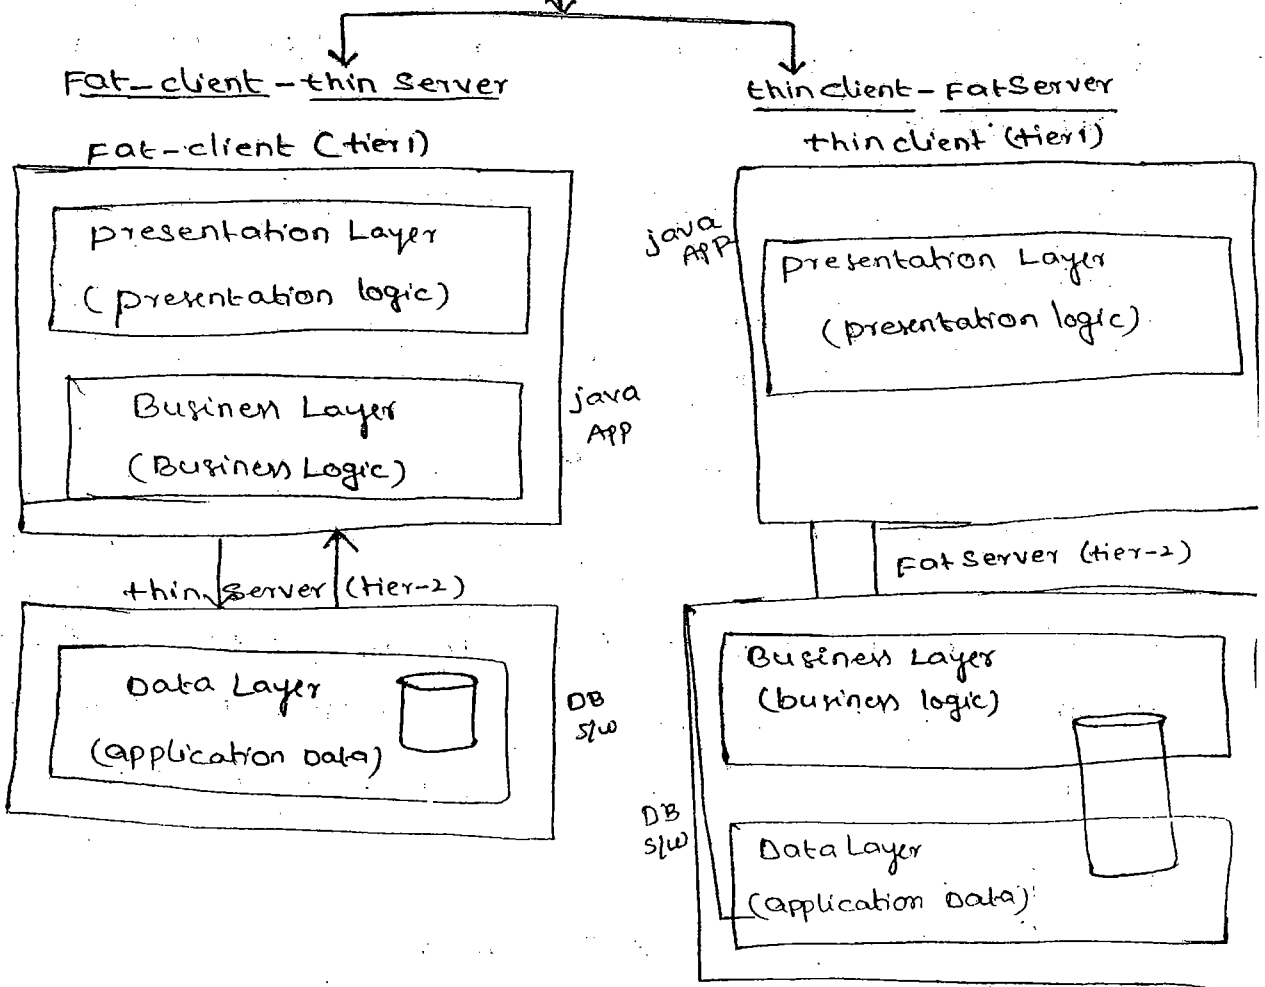 Fat-client-thin server
Fat-client (tier1)
presentation Layer
(presentation logic)
Business Layer
(Business Logic)
java
APP
thin server (tier-2)
Data Layer
(application Data)
DB
S/W
thin client - Fat Server
thin client (tier1)
java
APP
presentation Layer
(presentation logic)
Fat Server (tier-2)
Business Layer
(business logic)
DB
S/W
Data Layer
(application Data)